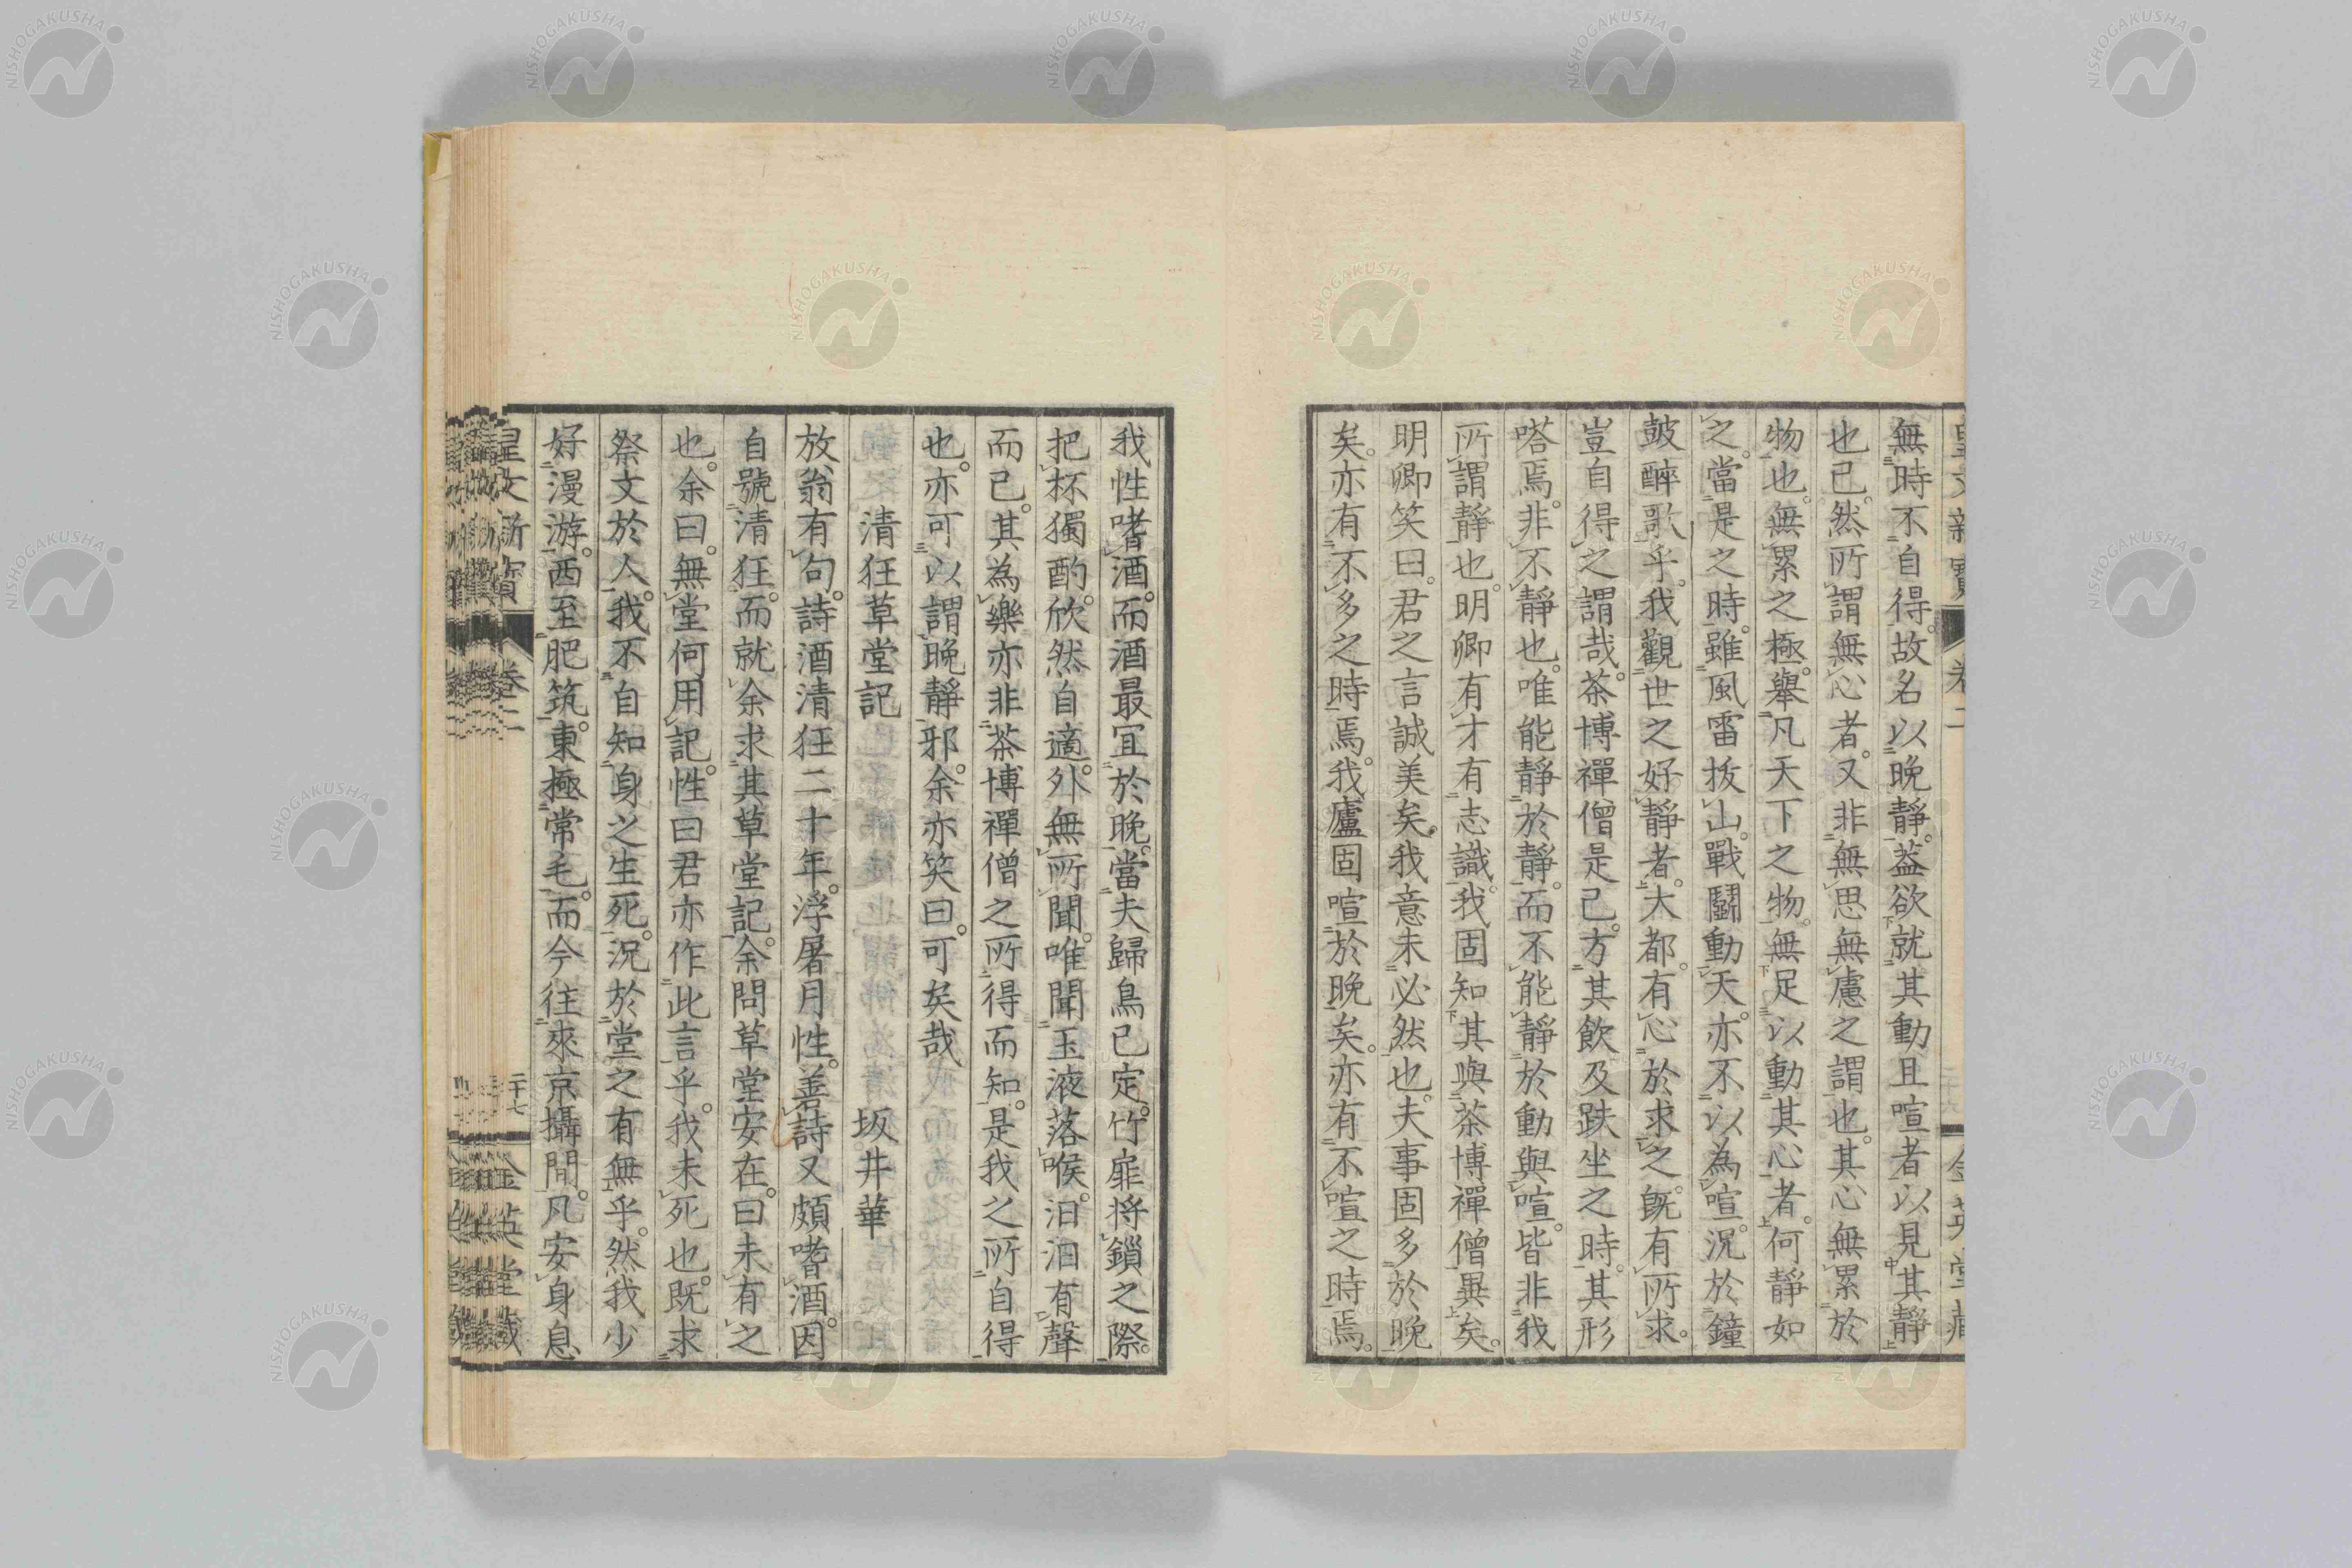 無時不自得。故名以晩静。葢欲就其動且喧者以見其静
也已。然所謂無心者。又非無思無慮之謂也。其心無累於
物也。無累之極。舉凡天下之物。無足以動其心者。何静如
之。當是之時。雖風雷拔山。戰鬪動天。亦不以為喧。況於鐘
皷醉歌乎。我觀世之好静者。大都有心於求之。既有所求。
豈自得之謂哉。茶博禪僧是已。方其飲及趺坐之時。其形
嗒焉。非不静也。唯能静於静。而不能静於動與喧。皆非我
所謂静也。明卿有才有志識。我固知其與茶博禪僧異矣。
明卿笑曰。君之言誠美矣。我意未必然也。夫事固多於晩
矣。亦有不多之時焉。我廬固喧於晩矣。亦有不喧之時焉。
我性嗜酒。而酒最宜於晩。當夫歸鳥已定。竹扉将鎖之際。
把杯獨酌。欣然自適。外無所聞。唯聞玉液落喉。汩汩有聲
而已。其為樂亦非茶博禪僧之所得而知。是我之所自得
也。亦可以謂晩静邪。余亦笑曰。可矣哉
清狂草堂記 坂井華
放翁有句。詩酒清狂二十年。浮屠月性。善詩又頗嗜酒。因
自號清狂。而就余求其草堂記。余問草堂安在。曰未有之
也。余曰。無堂何用記。性曰君亦作此言乎。我未死也。既求
祭文於人。我不自知身之生死。況於堂之有無乎。然我少
好漫游。西至肥筑。東極常毛。而今往來京攝間。凡安身息
皇文新寶 卷二 二十七 金英堂藏